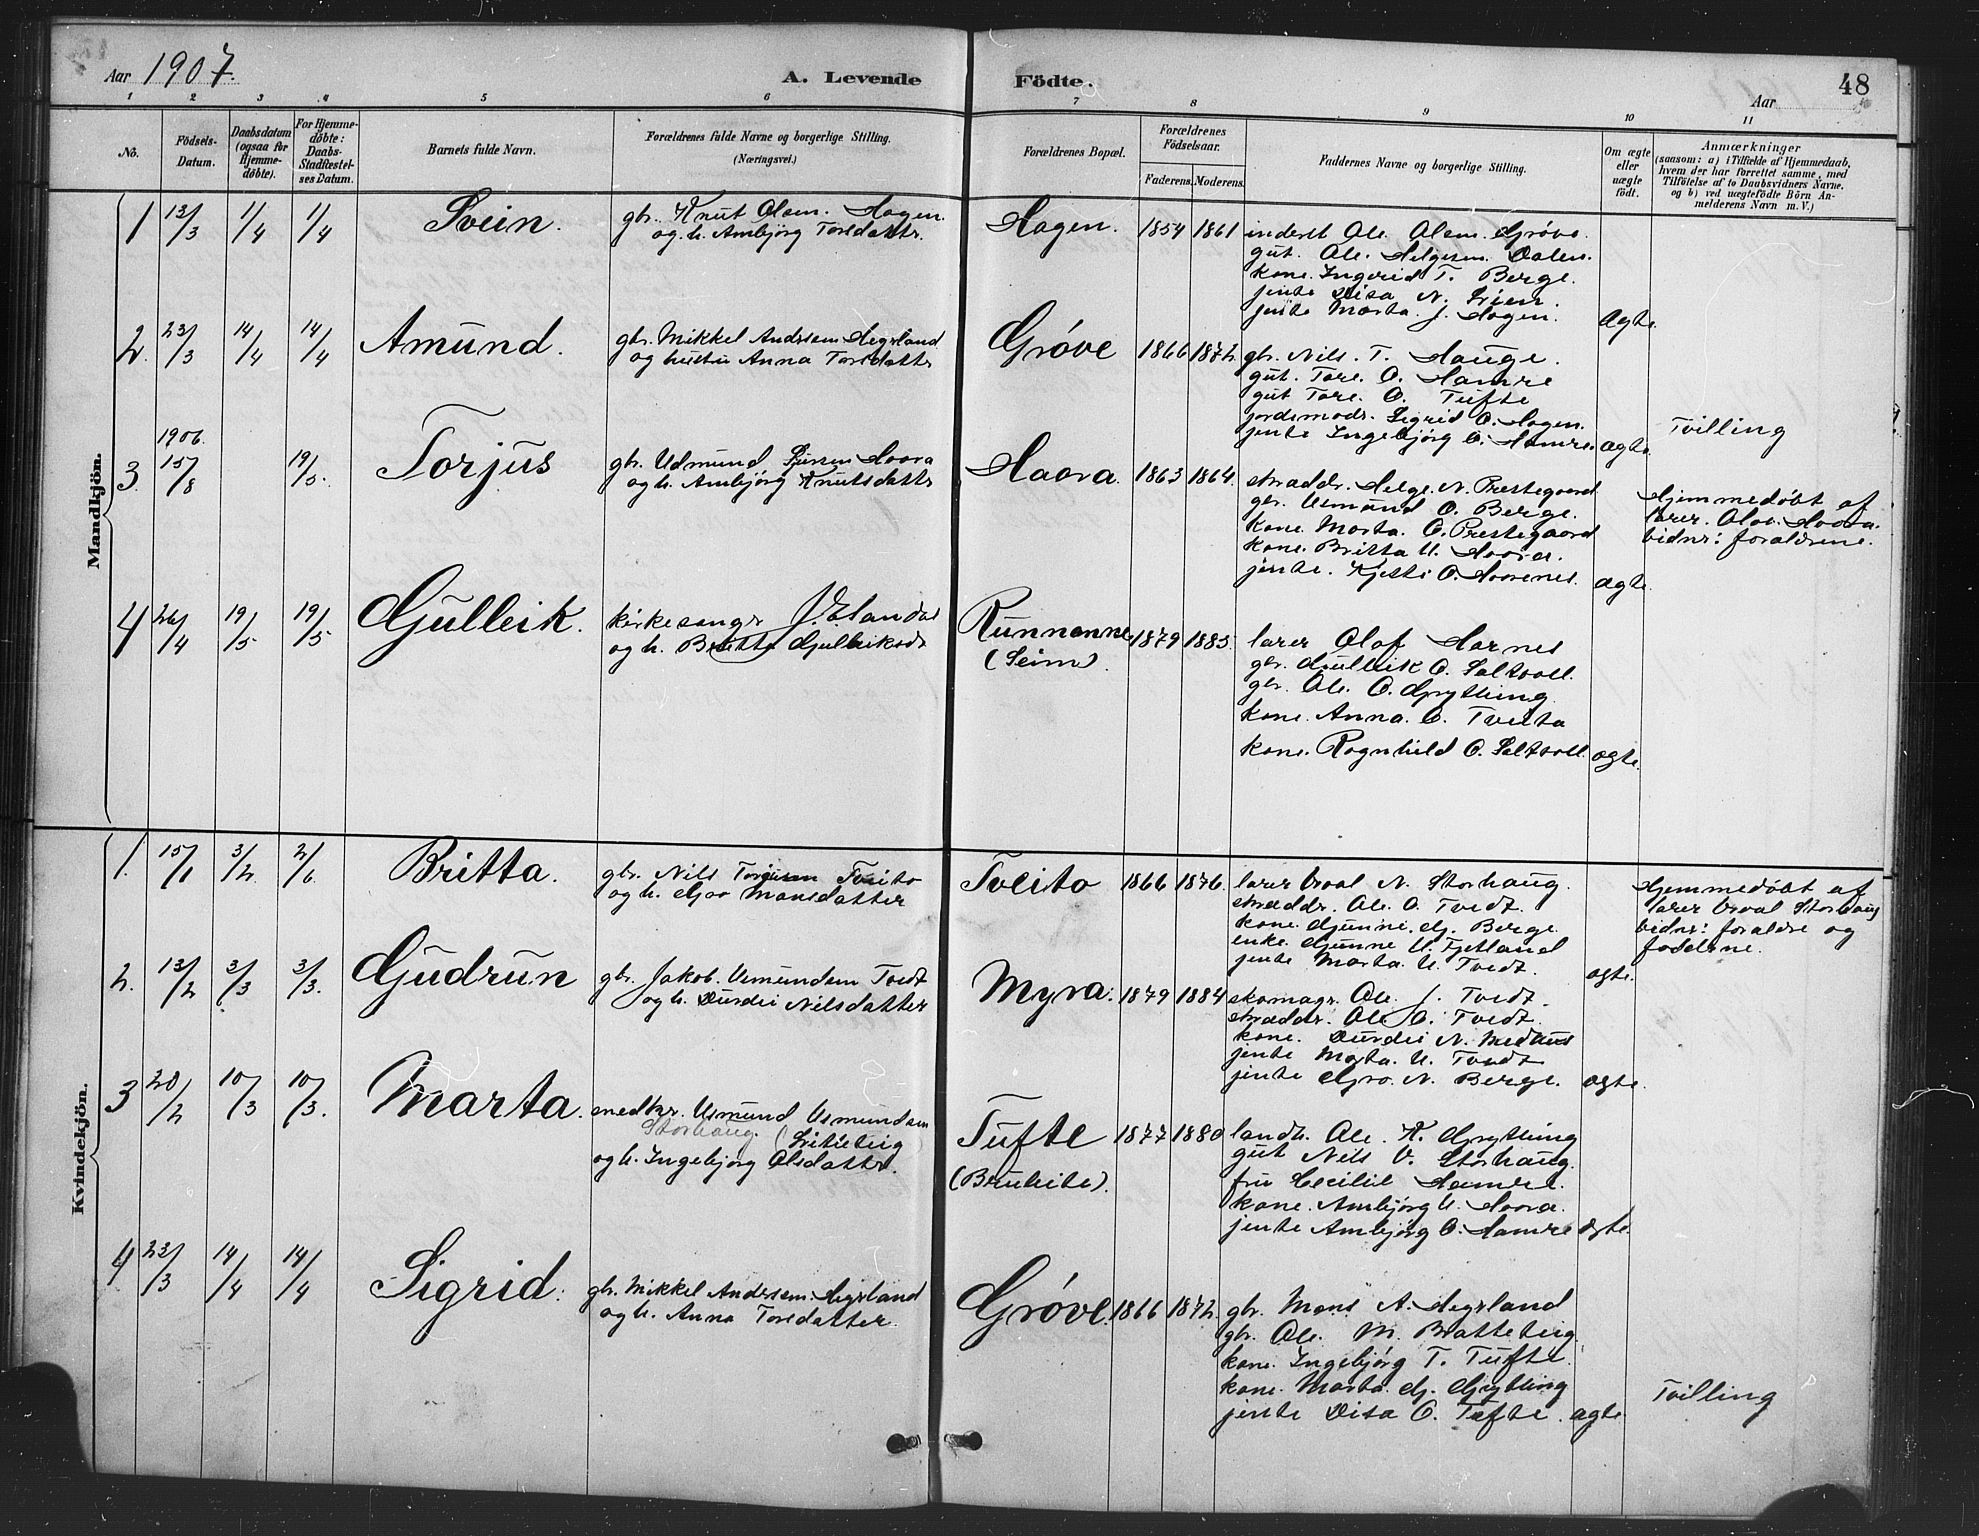 Aar 1907.
A. Levende Födte.
Aar
48
1 2 3 4 5 6 7 8 9 10 11
No.
Födsels-
Datum.
Daabsdatum
(ogsaa for
Hjemme-
döbte).
For Hjemme-
döbte:
Daabs-
Stadfæstel-
ses Datum.
Barnets fulde Navn.
Forældrenes fulde Navne og borgerlige Stilling.
(Næringsvei.)
Forældrenes Bopæl.
Forældrenes
Födselsaar.
Faderens. Moderens.
Faddernes Navne og borgerlige Stilling.
Om ægte
eller
uægte
födt.
Anmærkninger
(saasom: a) i Tilfælde af Hjemmedaab,
hvem der har forrettet samme, med
Tilföielse af to Daabsvidners Navne,
og b) ved uægtefödte Börn An-
melderens Navn m. V.)
Mandkjön.
1 13/3 1/4 1/4 Svein.
gbr. Knut Olsen. Hagen.
og h. Ambjörg Toredattr.
Hagen. 1854 1861
inderst Ole Olsen Grøve.
gut. Ole Helgesen Dalen.
kone. Ingerid T. Berge.
jente Disa N. Lien.
jente Marta J. Hagen.
ægte.
2. 23/3 14/4 14/4 Amund.
gbr. Mikkel Andersen Aegrland
og hustru Anna Toredattr
Grøve 1866 1872.
gbr. Nils T. Hauge.
gut. Tore O. Hamre
gut Tore O. Tufte
jordemodr. Sigrid O. Hagen.
jente Ingebjørg O. Hamre.
ægte.
Tvilling
3. 1906. 15/8 19/5. Torjus
gbr. Udmund Haara
og h. Ambjörg Knutsdattr
Haara. 1863 1864.
skræddr. Helge N. Prestegaard
gbr. Usmund O. Berge.
kone. Marta O. Prestegaard
kone. Britta U. Haara.
jente. Kjetti O. Haarenes.
ægte.
Hjemmedøbt af
lærer Olav Haara.
vidner: forældrene.
4 26/4 19/5 19/5 Gjulleik.
kirkesangr J. Elandal
og h. Britta Gjulleiksdr
Runnanne
(Seim).
1879 1885.
lærer Olaf Aarnes
gbr. Gjulleik O. Saltvoll.
gbr. Ole O. Grything
kone. Anna O. Tveita
kone. Ragnhild O. Saltvoll.
ægte.
Kvindekjön.
1. 15/1 3/2. 2/6 Britta.
gbr. Nils Torjusen Tveito
og h. Gjro Monsdatter
Tveito 1866 1876.
lærer Orval N. Storhaug.
skræddr. Ole O. Tvedt.
kone Gjunne Gj. Berge.
enke Gjunne U. Fjetland
jente Marta U. Tvedt.
ægte.
Hjemmedøbt af
lærer Orval Storhaug
vidnr: forældre og
fadderne.
2. 13/2 3/3 3/3. Gjudrun
gbr. Jakob Usmundsen Tvedt
og h. Durdei Nilsdatter
Myra. 1879 1884
skomagr. Ole J. Tvedt.
skræddr. Ole O. Tvedt.
kone. Durdei N. Medaus
jente Marta U. Tvedt
jente Gjro N. Berge.
ægte.
3 20/2 10/3 10/3. Marta.
snedkr. Usmund Usmundsen
Storhaug.
og h. Ingebjørg Olsdattr.
Tufte
(Bruhite).
1877 1880
landh. Ole K. Grything
gut Nils O. Storhaug.
fru Cecilie Hamre.
kone. Ambjörg U. Haara.
jente Ambjörg O. Hamre
ægte.
4 23/3 14/4 14/4 Sigrid.
gbr. Mikkel Andersen Aegrland
og h. Anna Toredatter.
Grøve. 1866 1872.
gbr. Mons A. Aegrland
gbr. Ole M. Bratteteig.
kone. Ingebjørg T. Tufte.
kone. Marta Gj. Gjrytting
jente Disa O. Tufte.
ægte.
Tvilling